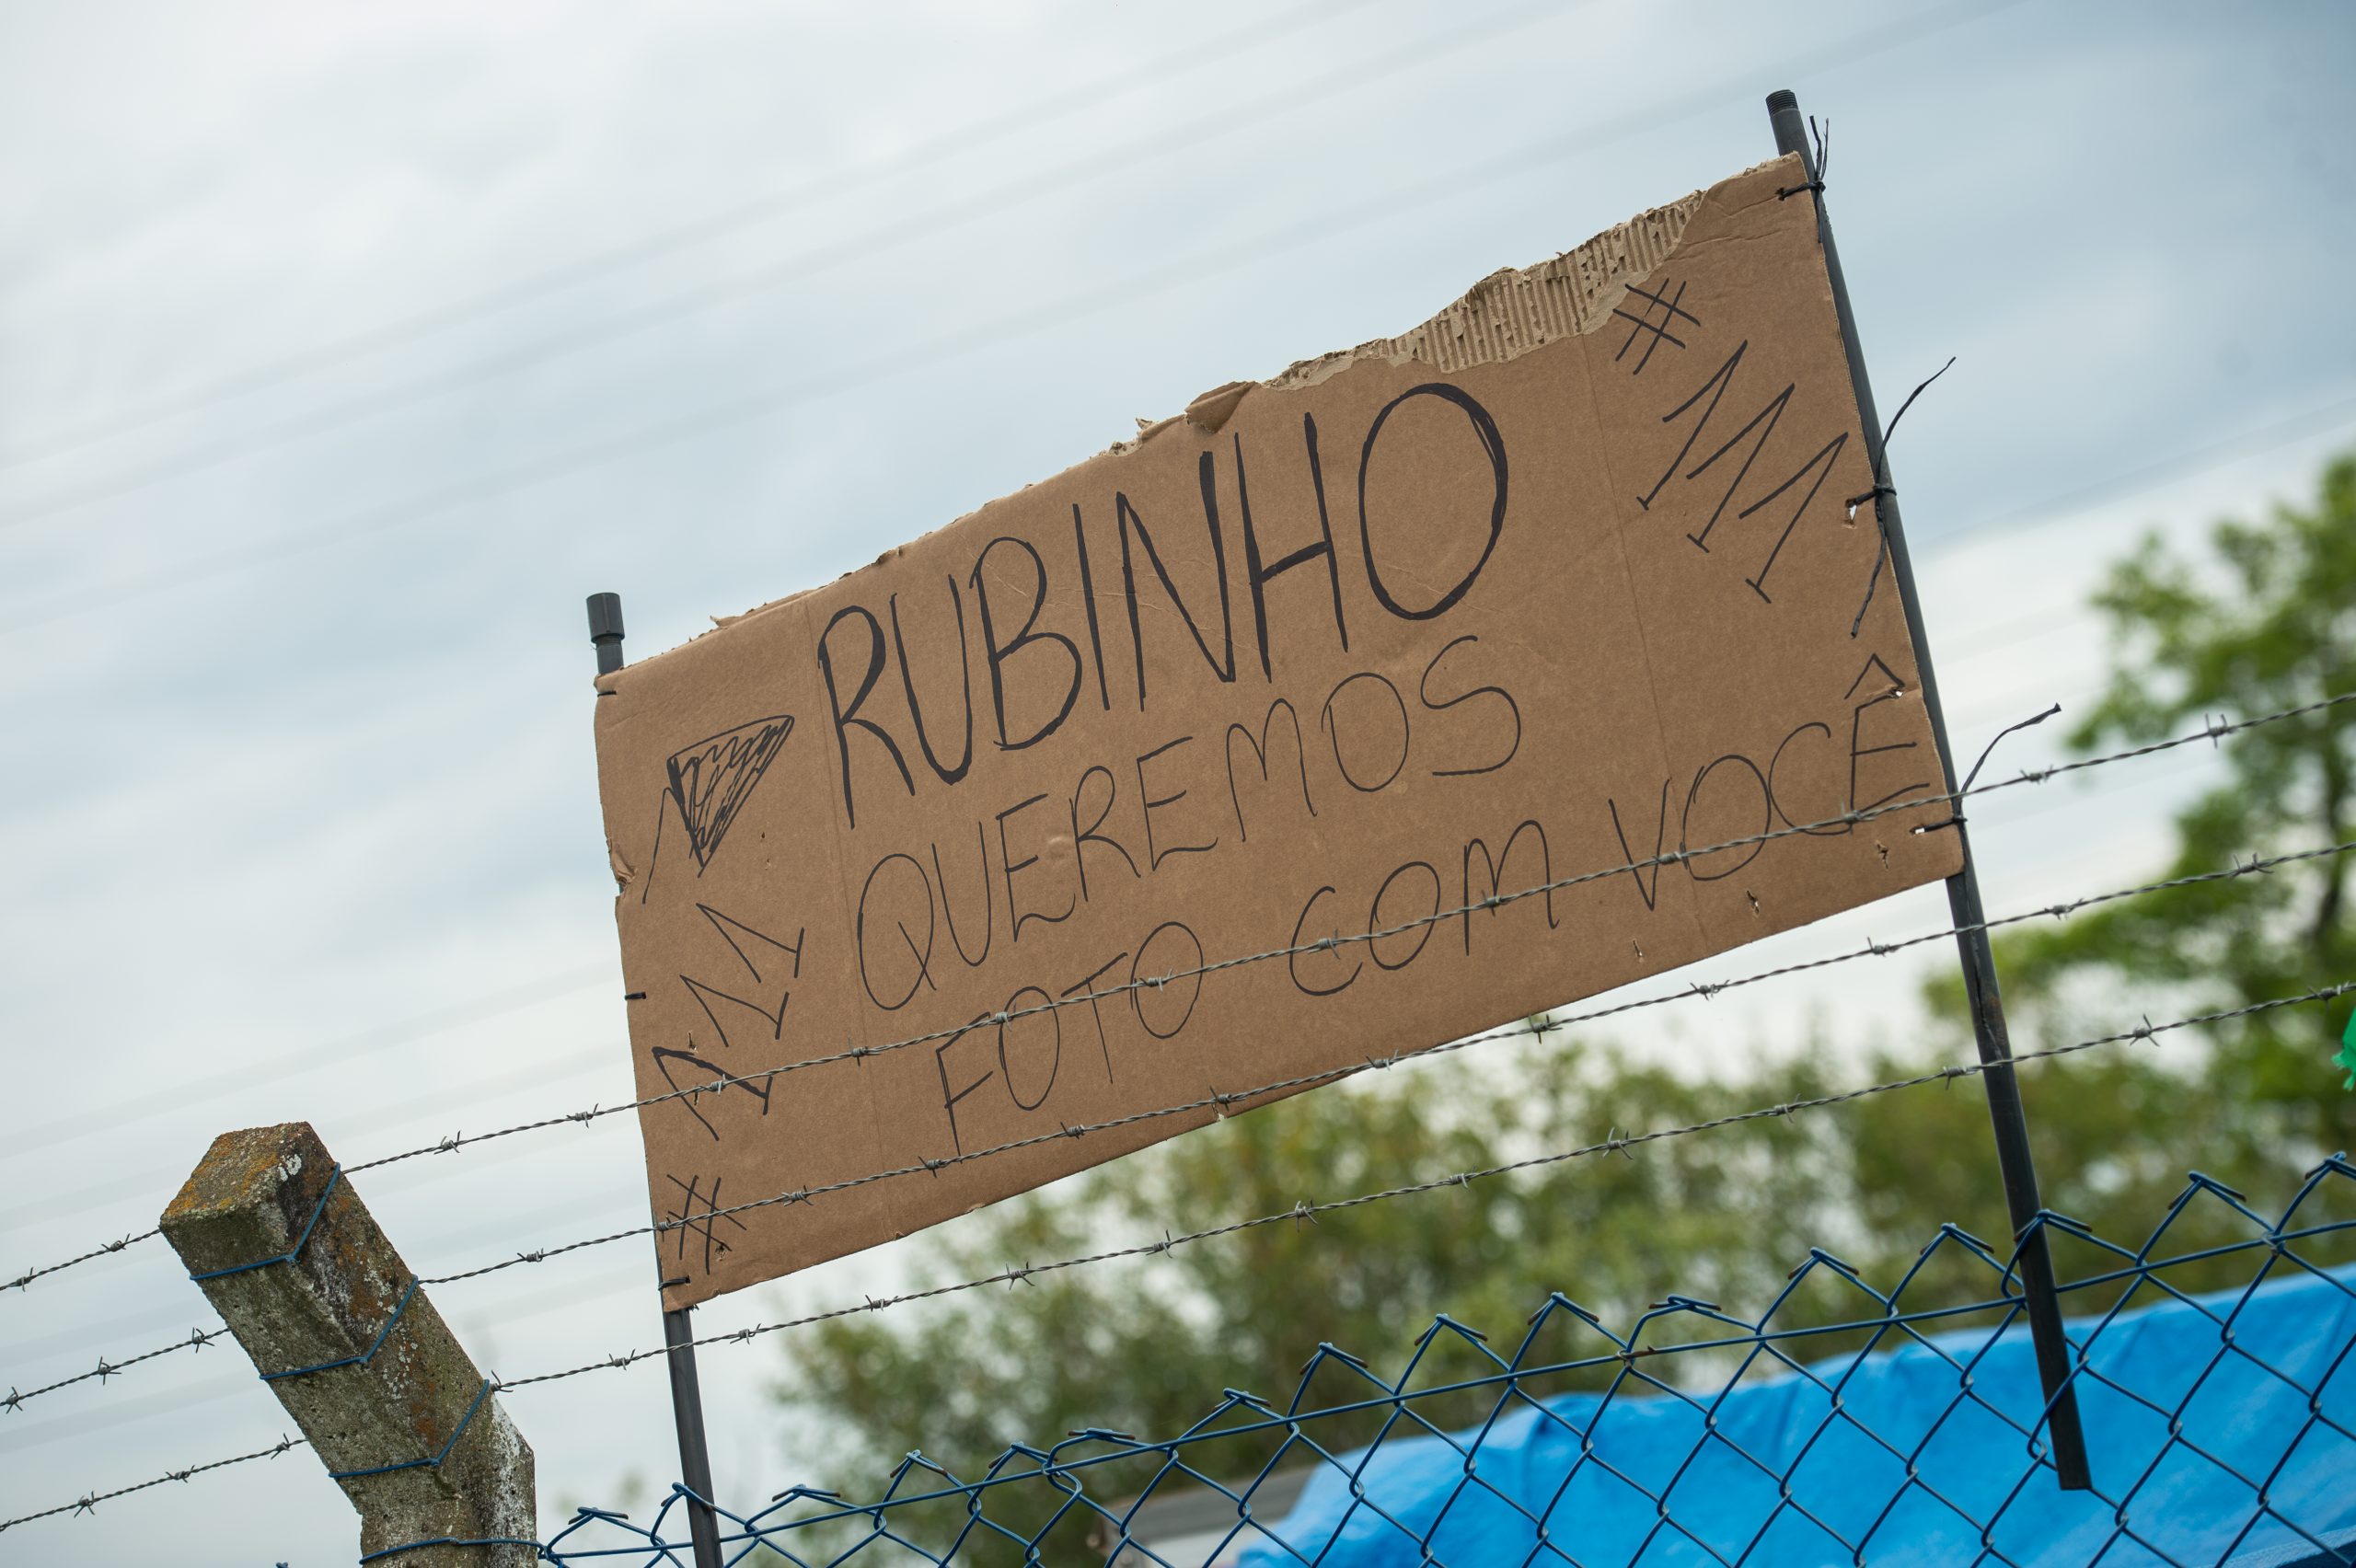 RUBINHO
QUEREMOS
FOTO COM VOCÊ
#111
#111